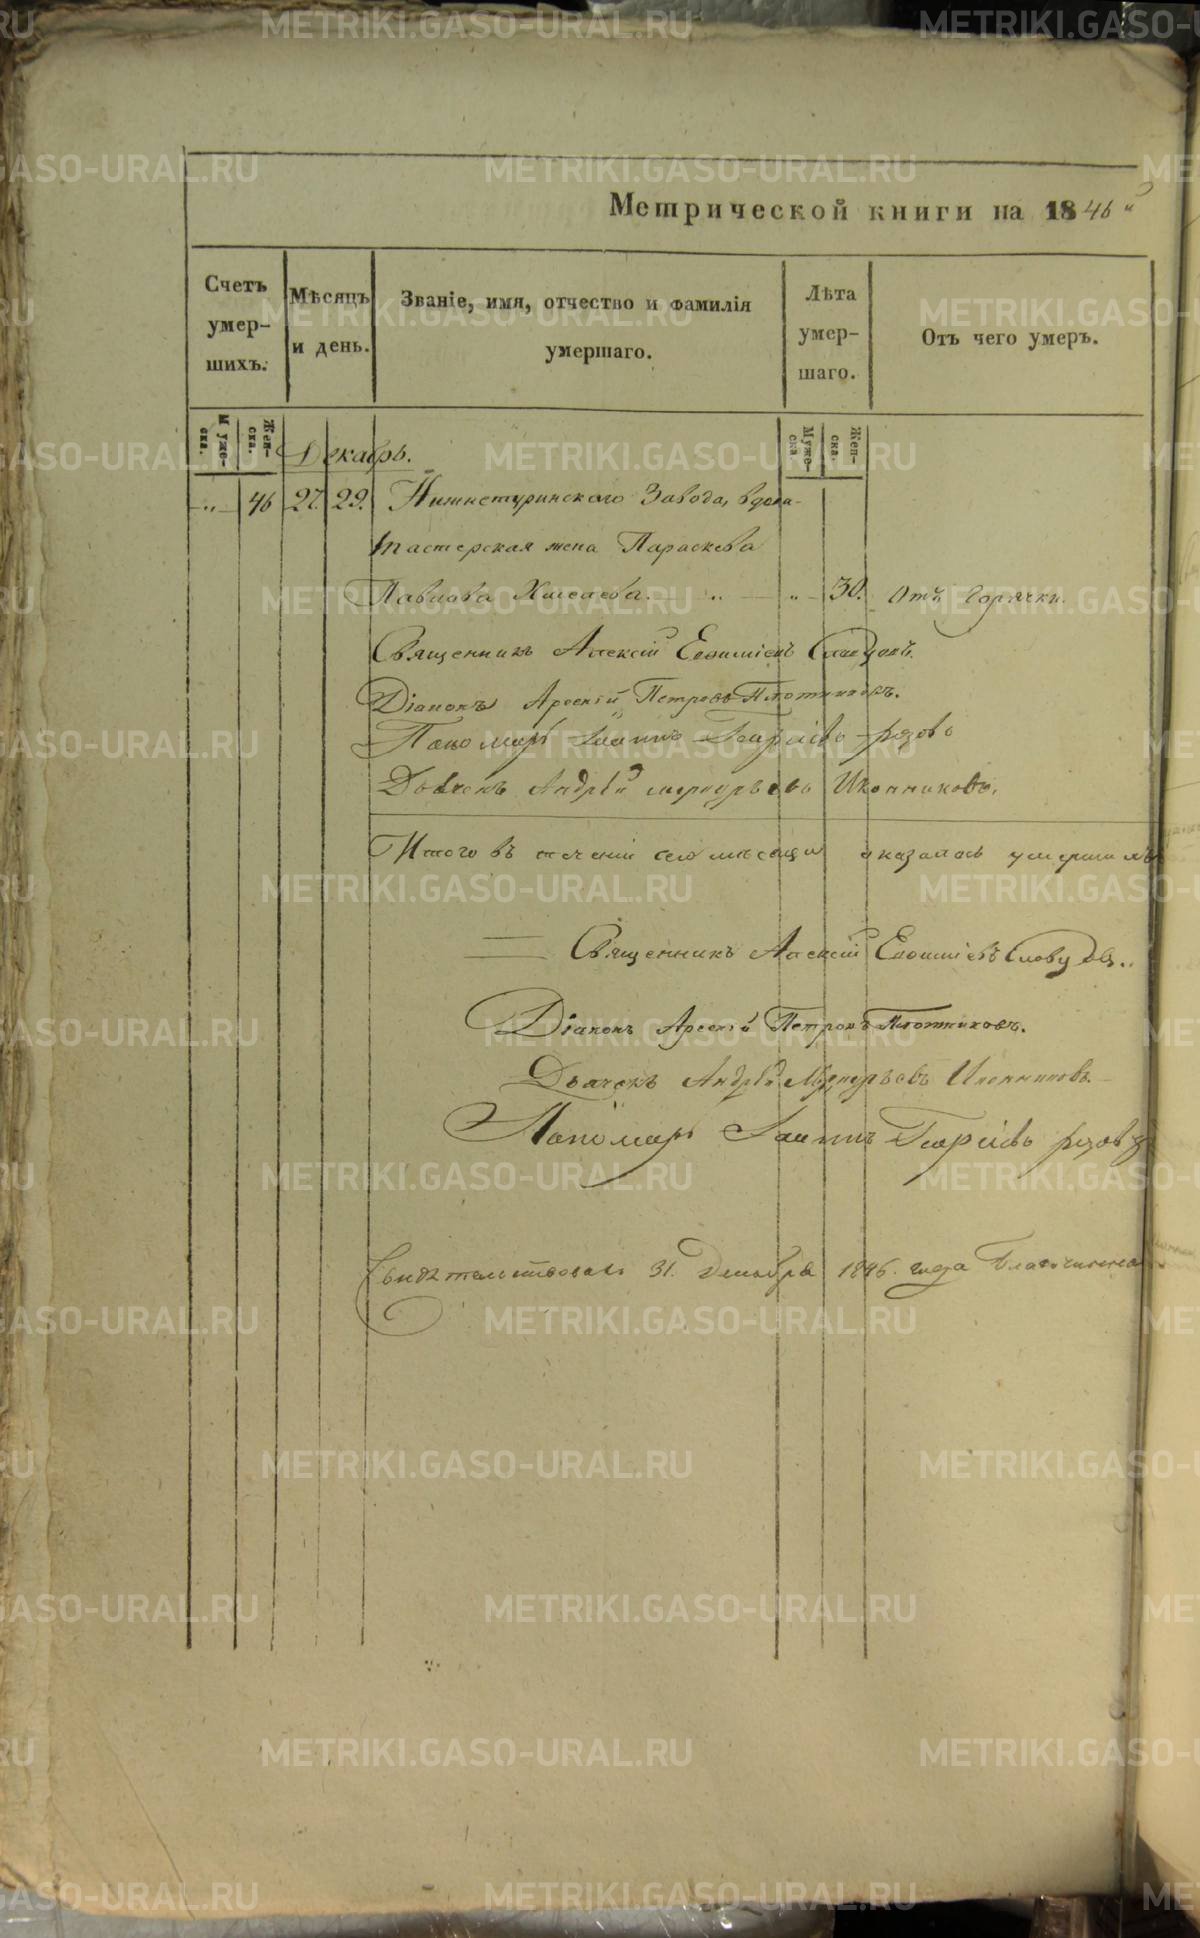 Метрической книги на 1846
Счетъ умер-шихъ.
Мѣсяцъ и день.
Званіе, имя, отчество и фамилія умершаго.
Лѣта умер-шаго.
Отъ чего умеръ.
Муже-ска.
Жен-ска.
Муже-ска
Жен-ска.
Декабрь.
„ 46 27. 29. Нижнетуринскаго Завода,
мастерская жена Параскева
Павлова „ „ 30. Отъ горячки.
Священникъ Алексій Евѳиміевъ
Діаконъ Арсеній Петровъ Плотниковъ.
Пономарь Іоаннъ Георгіевъ
Дьячекъ Андрей Меркурьевъ Иконниковъ.
Итого въ теченіи сего мѣсяца оказалось умершихъ
Священникъ Алексій Евѳиміевъ
Діаконъ Арсеній Петровъ Плотниковъ.
Дьячекъ Андрей Меркурьевъ Иконниковъ.
Пономарь Іоаннъ Георгіевъ
Свидѣтельствовалъ 31. Декабря 1846. года Благочинный
METRIKI.GASO-URAL.RU